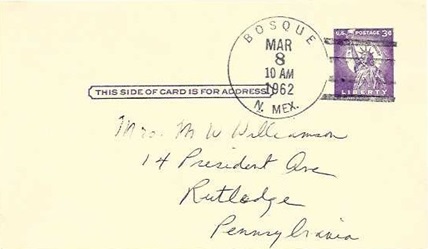 BOSQUE
MAR
8
10 AM
1962
N. MEX.
U.S. POSTAGE 3¢
LIBERTY
THIS SIDE OF CARD IS FOR ADDRESS
Mrs. M W Williamson
14 President Ave
Rutledge
Pennsylvania